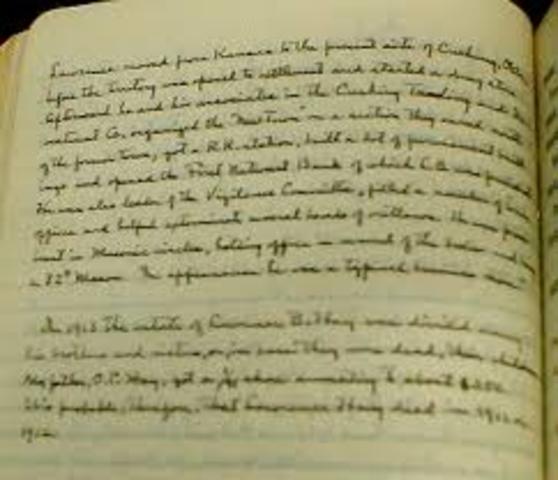 Lawrence moved from Kansas to the present site of Cushing, Okla.
before the territory was opened to settlement and started a drug store
Afterward he and his associates in the Cushing Townsite and
material Co. organized the "New Town" on a section they owned north
of the former town, got a R.R. station, built a lot of permanent
and opened the First National Bank of which L.B. was president
He was also leader of the Vigilance Committee, filled a number of
offices and helped exterminate several bands of outlaws. He was
in Masonic circles, holding office in several of the bodies and
a 32° Mason. In appearance he was a typical business man."
In 1913 the estate of Lawrence B. Hay was divided among
his brothers and sisters, or, in case they were dead, their children
My father, O.P. Hay, got a share amounting to about
It is probable, therefore, that Lawrence Hay died in 1912 or